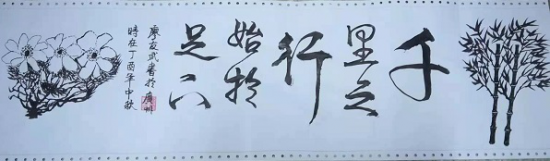 千
里之
行
始於
足下
廖友武書於廣州
時在丁酉年中秋